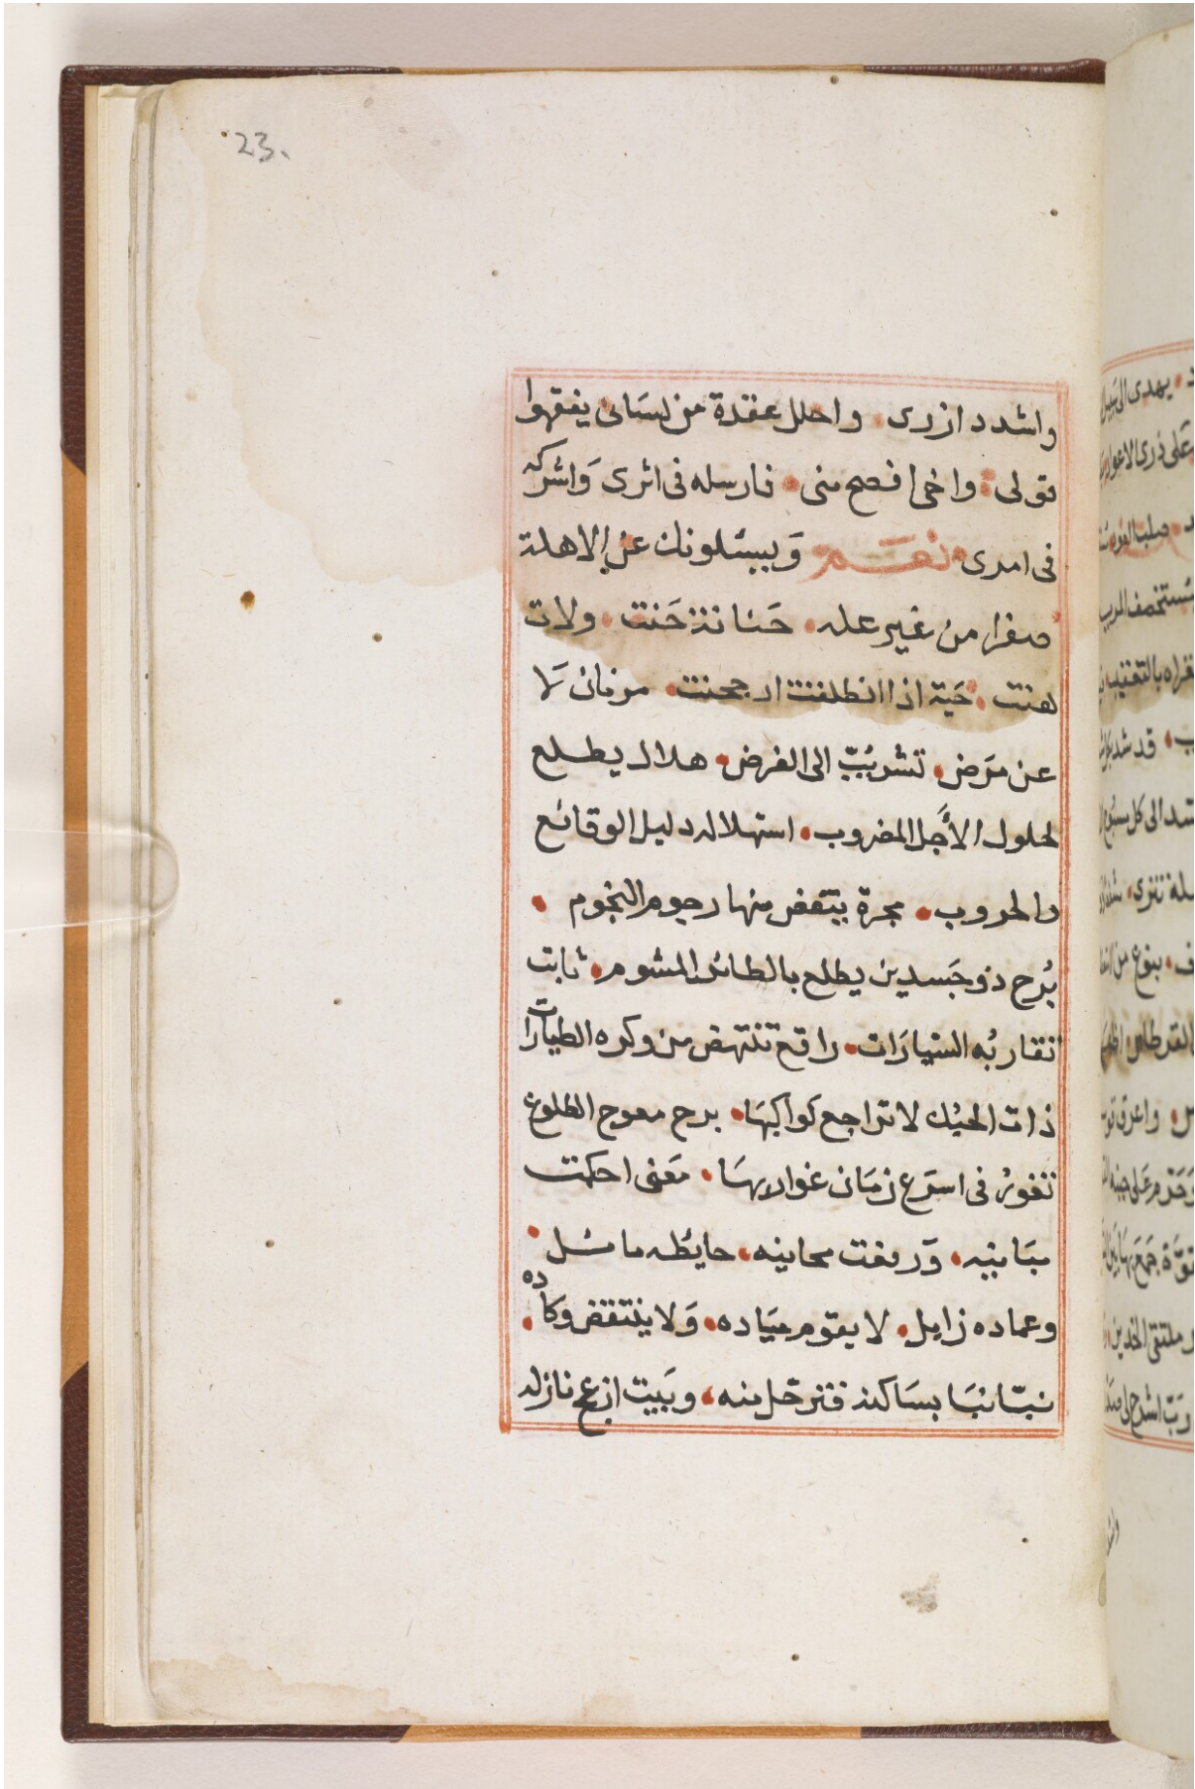 23.
واشدد ازرى • واحلل عقدة من لسانى يفقهوا
قولى • واخى افصح منى • فارسله فى اثرى وَاشركه
فى امرى • نعَم • وَيسئلونك عن الاهلة
صفرا من غير عله • حَنانة حَنت • ولات
هنت • حَية اذا انطلقت ارجحنت • مرنان لا
عن مَرض • تشرئبّ الى الغرض • هلال يطلع
لحلول الأَجل المضروب • استهلاله دليل الوقائع
والحروب • مجرة ينقض منها رجوم النجوم •
بُرج ذو جَسدين يطلع بالطائر المشوم • ثابت
تقاربُه السَيارَات • واقع تنتهض من وكره الطيارات
ذات الحبُك لا تراجع كواكبهَا • برج معوج الطلوع
تغورُ فى اسرَع زمَان غواربهَا • مغنى احكمت
مبَانيه • وَرفعت محانيه • حايطه مائل •
وعماده زايل • لا يقوم ميَاده • وَلا ينتقض وكاده •
نبّا نبَا بسَاكنه فترحّل منه • وبَيت ازعج نازله
يهدى الى سَبيل
عَلى ذرى الاعواد
قد شد
ملتقى الخدين
ربّ اشرح لى صَد